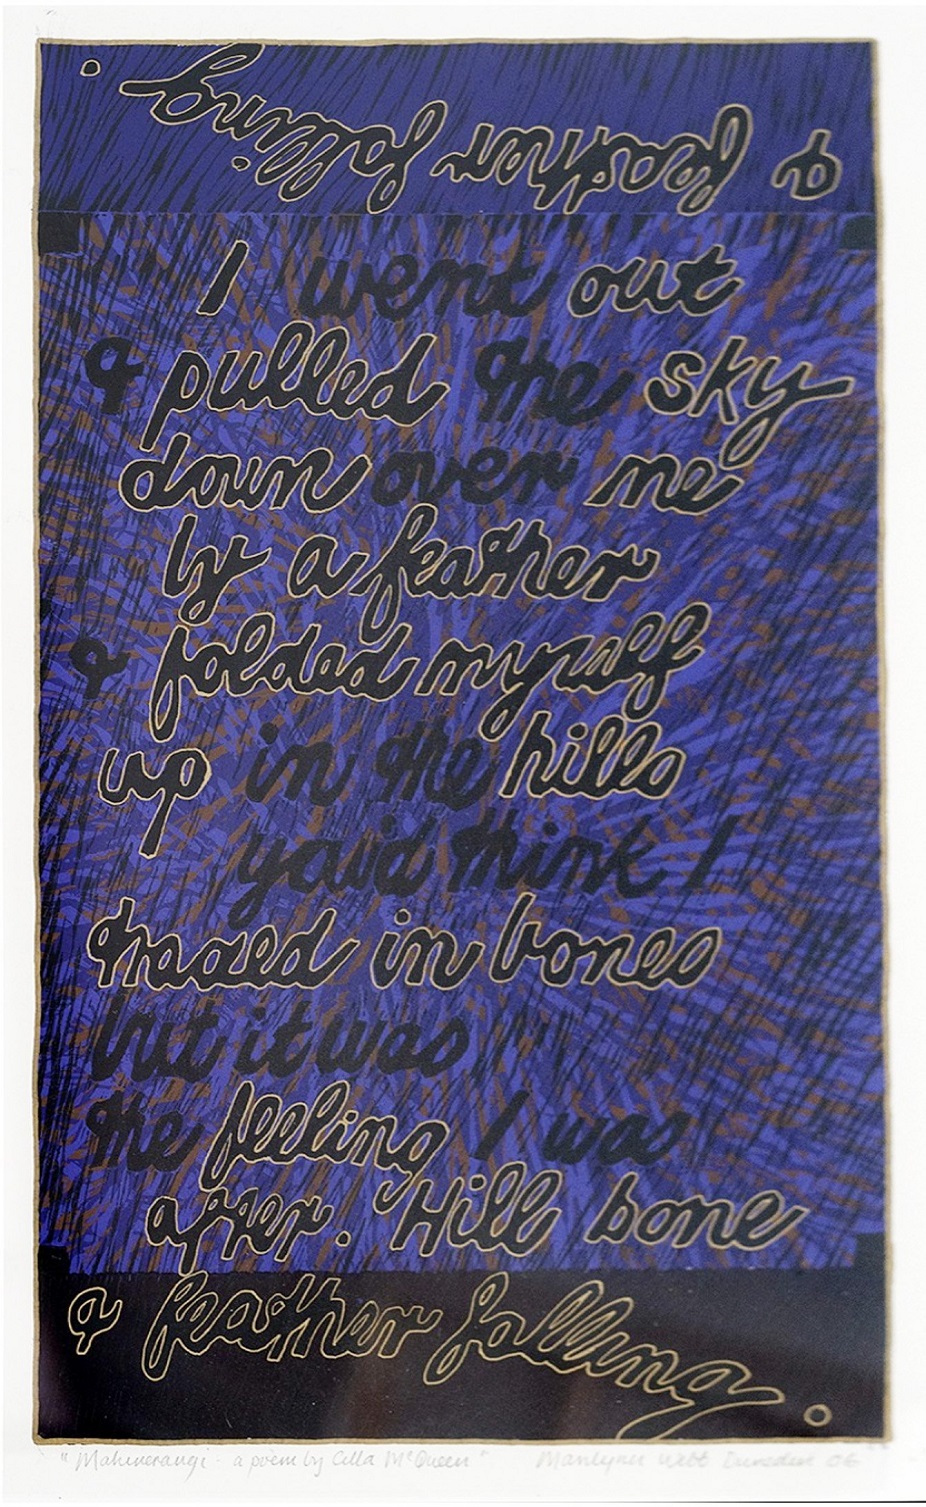 & feather falling .
I went out
& pulled the sky
down over me
by a feather
& folded myself
up in the hills
you'd think I
traced in bones
but it was
the feeling I was
after. Hill bone
& feather falling .
"Mahinerangi - a poem by Cilla McQueen" Marilynn Webb Dunedin 06